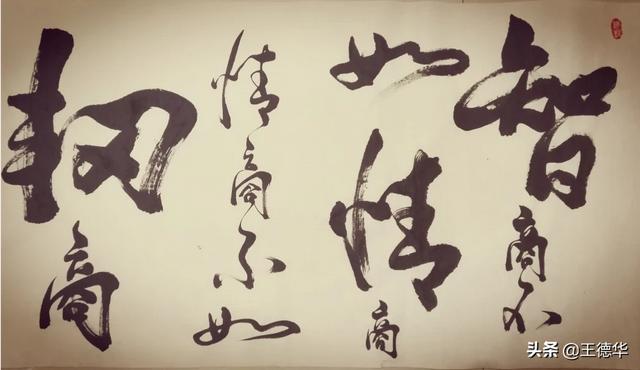 智商不
如情商
情商不如
韧商
头条 @王德华